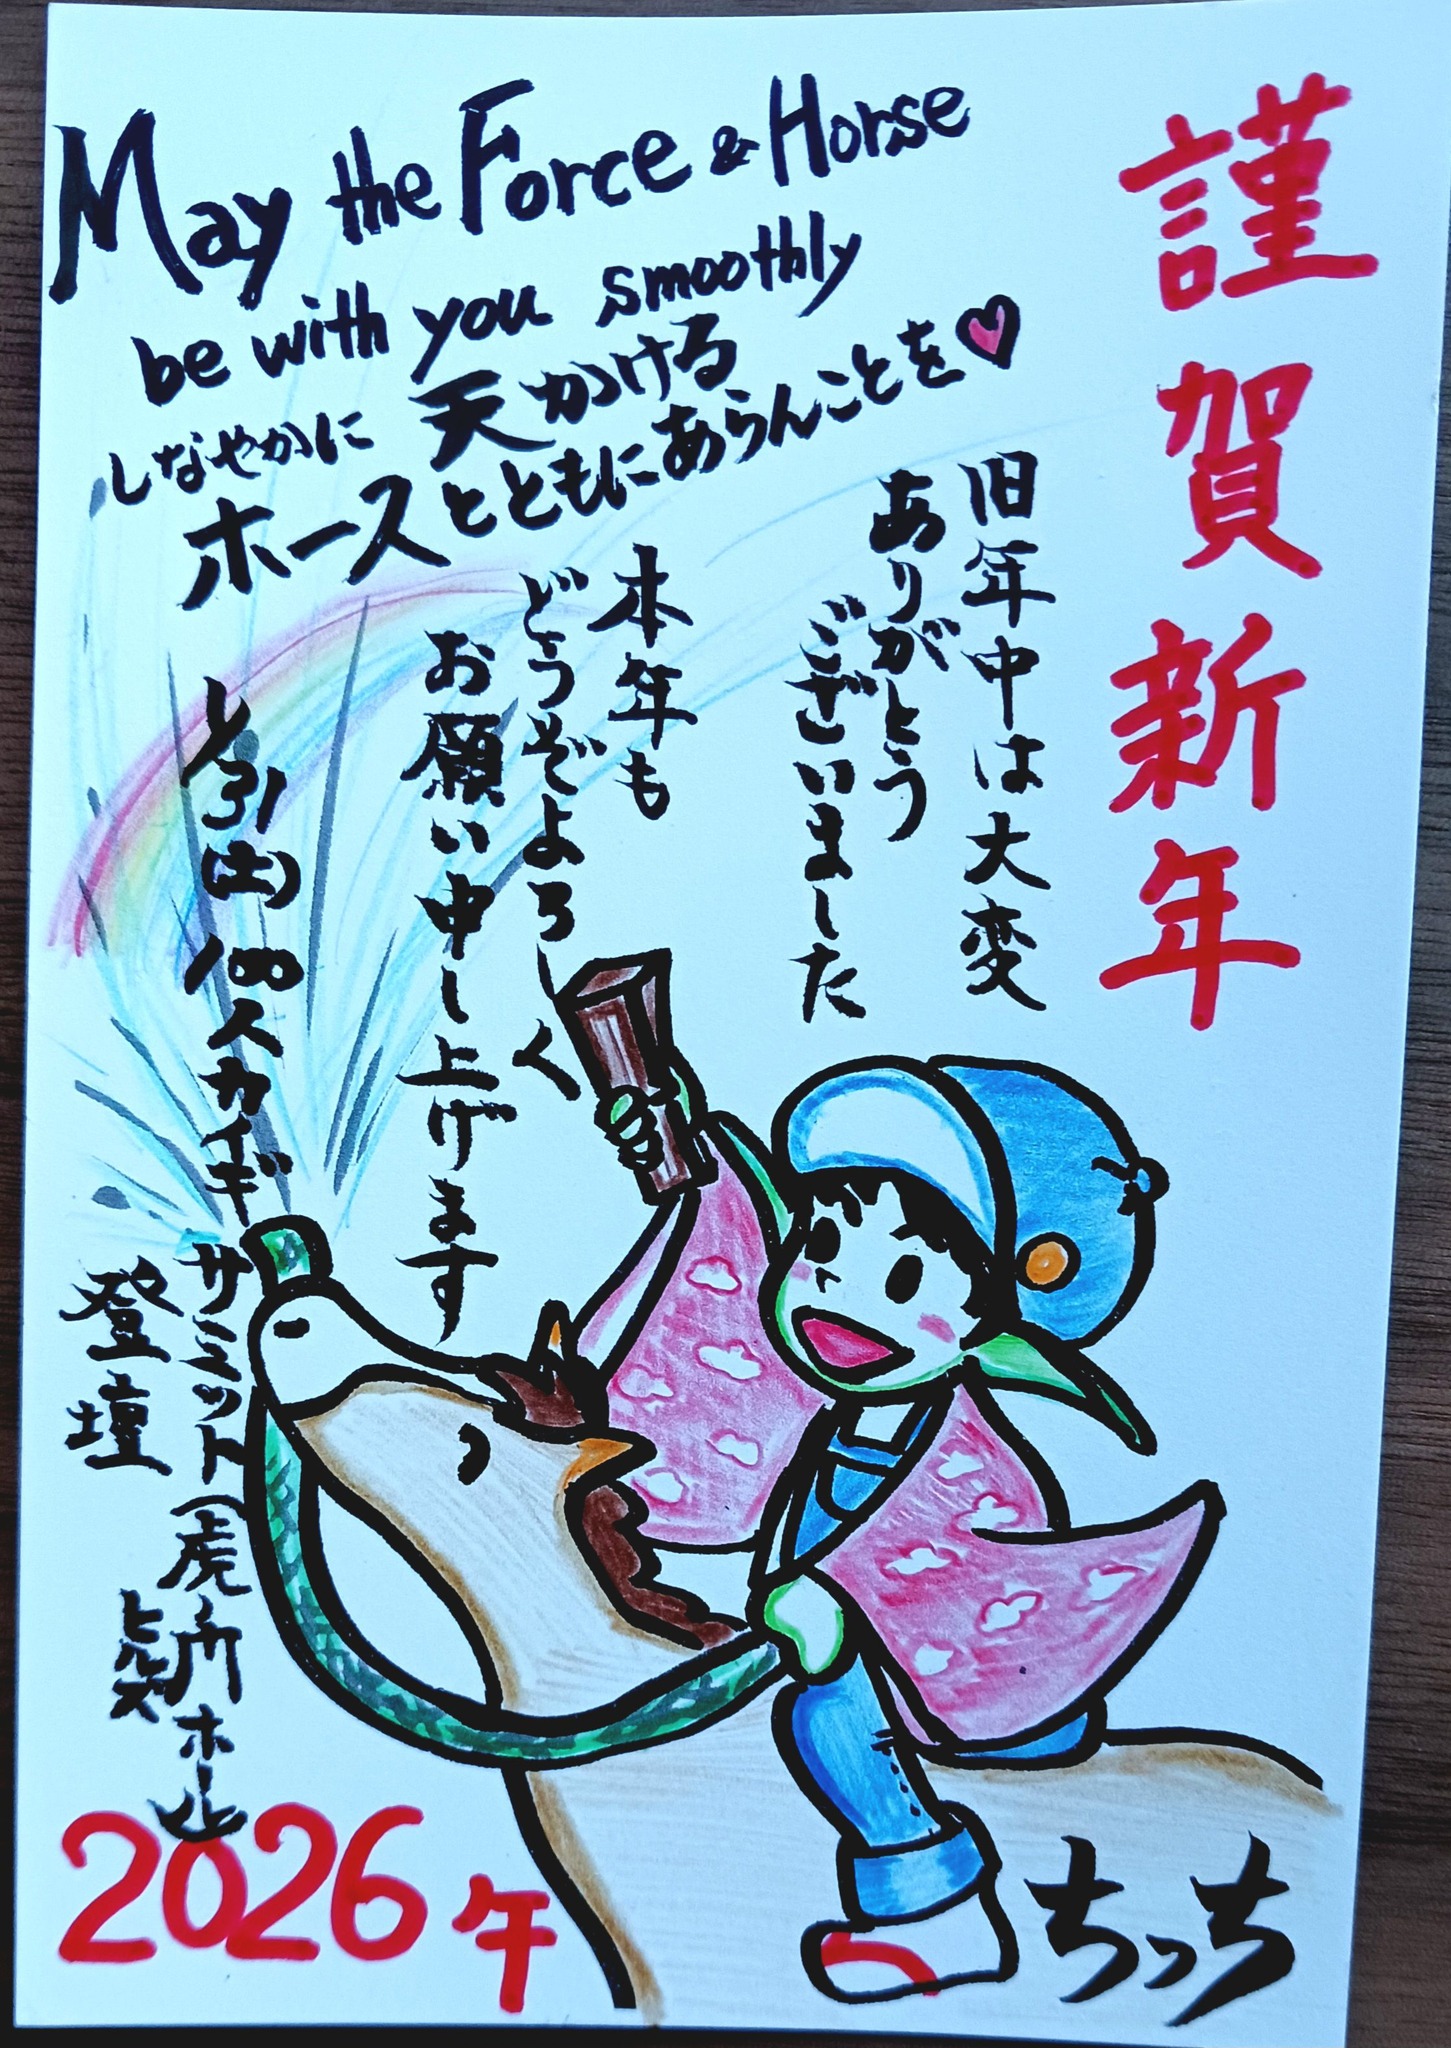 謹賀新年
May the Force & Horse
be with you smoothly
しなやかに 天かける
ホースとともにあらんことを
旧年中は大変
ありがとう
ございました
本年も
どうぞよろしく
お願い申し上げます
1/31(土)100人カイギ
サミット(虎ノ門ホール
ヒルズ
登壇
2026年
ちっち